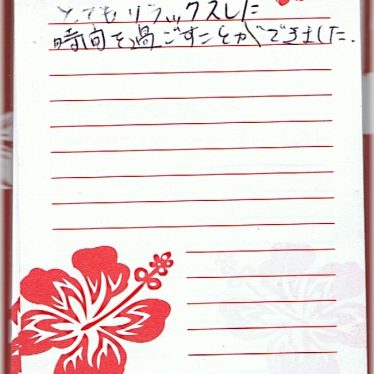 とてもリラックスした
時間を過ごすことができました.